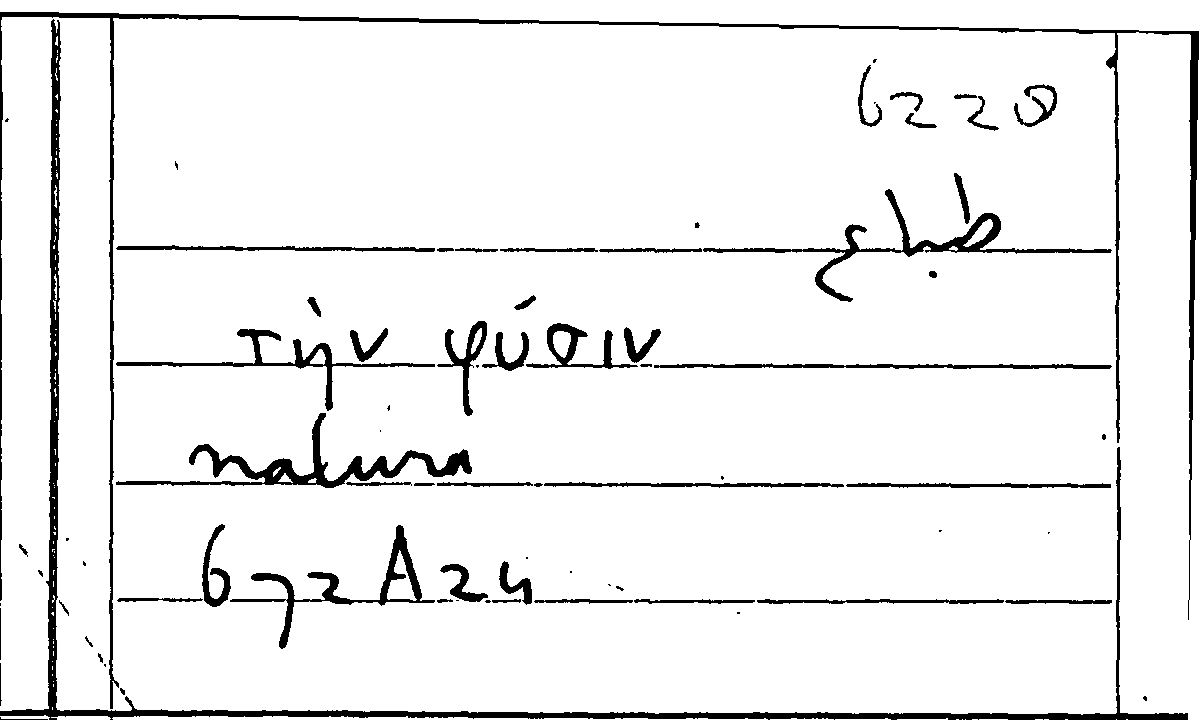 طباع
τὴν φύσιν
natura
672A24